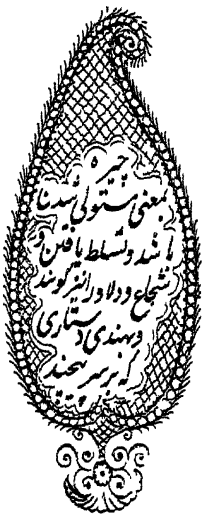 چیره
بمعنی مستولی شدن
باشد و تسلط یافتن و
شجاع و دلاور را نیز گویند
و بهندی دستاری
که بر سر پیچند